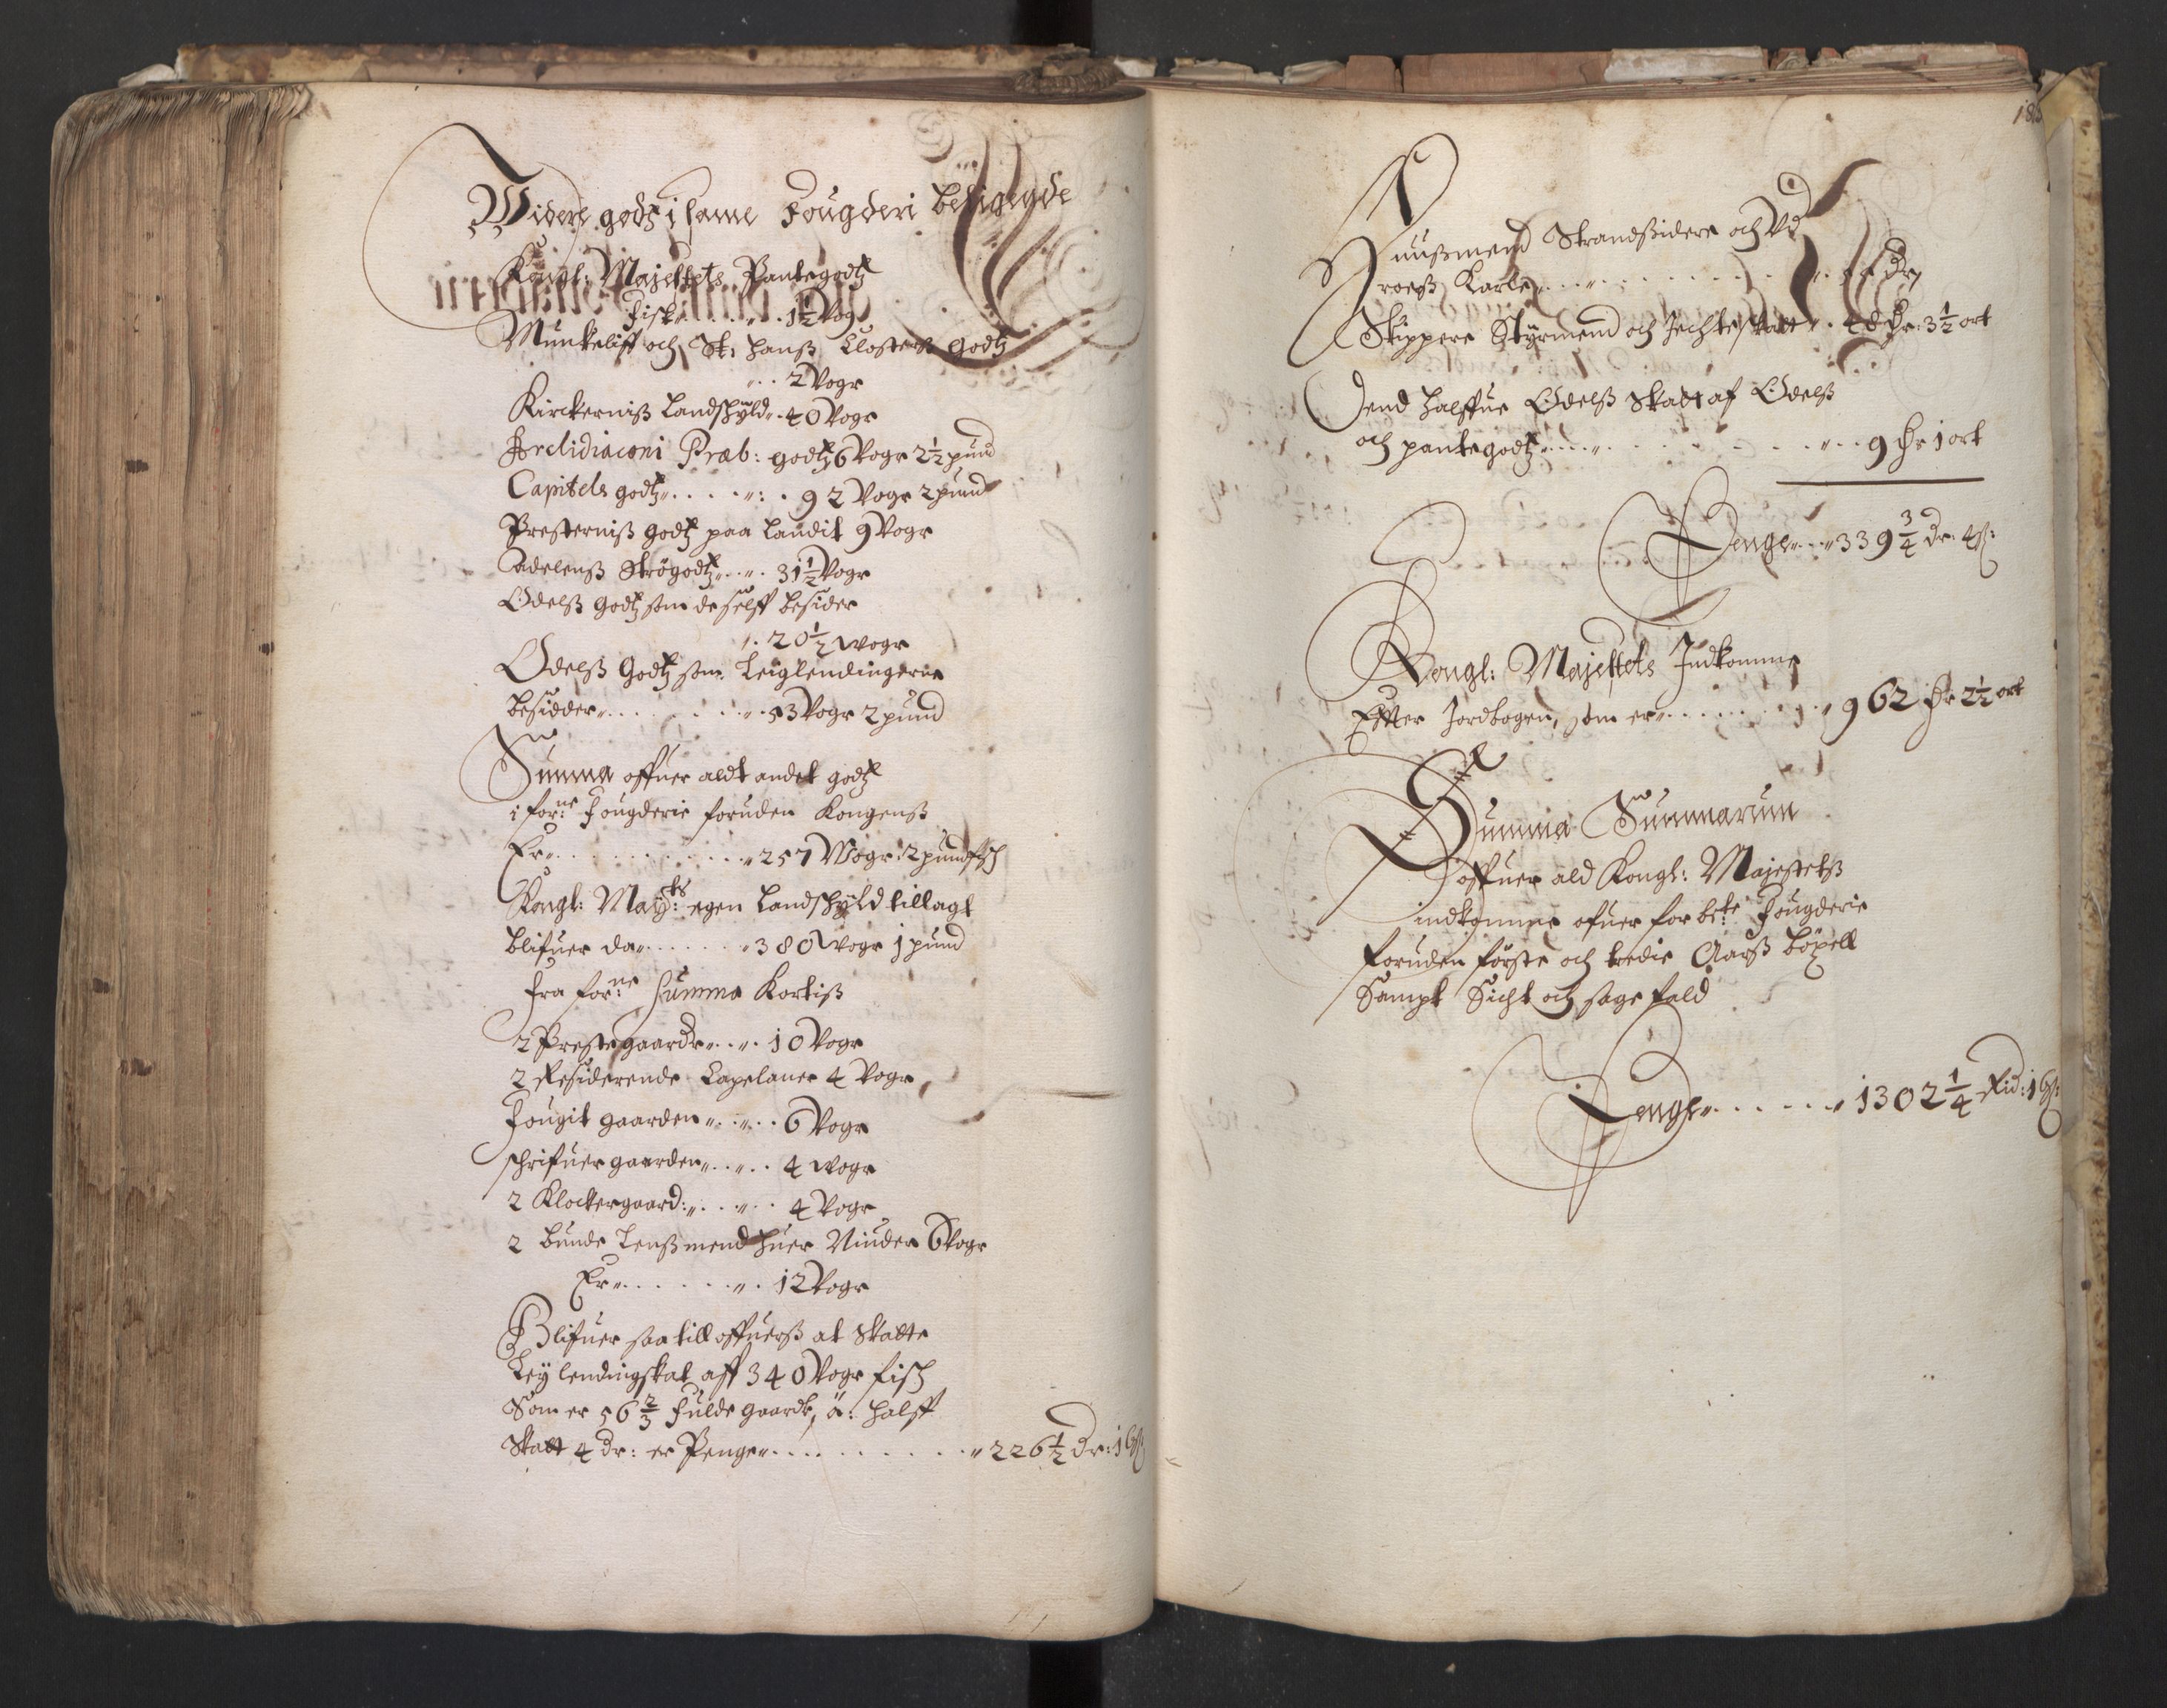 Widere godtz i same Fougderi beligende
Kongl: Majestets Pantegodtz
Fisk . . . 1½ Vog
Munkeliff och St: Hanß Closters Godtz
. . 2 Vogr
Kirckerniß Landschyld . 40 Vogr
Archidiaconi Præb: godtz 6 Vogr 2½ pund
Capitels godtz . . . . : . 92 Vogr 2 pund
Presterniß godtz paa Landit 9 Vogr
Adelenß Strögodtz . . . 31½ Vogr
Odelß godtz som de selff besider
. 20½ wogr
Odelß Godtz som Leiglendingerne
besidder . . . . . . . 53 Vogr 2 pund
Summa offuer aldt andet godtz
i forne: Fougderie foruden Kongenß
Er . . . . . . . . . 257 Wogr: 2 pund fisch
Kongl: Maÿts: egen Landschyld tillagt
blifuer da . . . . . . 380 wogr 1 pund
Fra forne: Summa Kortiß
2 Prestegaarde . . . 10 Vogr
2 Residerende Capelaner 4 Vogr
Fougit gaarden . . . . 6 Vogr
schrifuer gaarden . . . . 4 wogr
2 Klockergaard: . . . . 4 Vogr
2 bunde Lenßmend huer Niuder 6 Vogr
Er . . . . . . . 12 Vogr
Blifuer saa till offuerß at Skatte
Leÿlendingskat aff 340 Vogr fisch
Som er 56⅔ fulde gaarde, á: halff
Skatt 4 dr: er Penge . . . . . . . . . 226½ dr: 16 ß:
Huußmend Strandsidere och Vd
roerß Karle . . . . . . . dr
Skippere Styrmend och Jechteskatt . . dr: 3½ ort
Dend halffue Odelß Skatt af Odelß
och pantegodtz . . . . . . . . 9 dr 1 ort
Penge . . . 339¾ dr: 4 ß:
Kongl: Majestets Indkomme
Effter Jordbogen, som er . . . . . . . 962 dr 2½ ort
Summa Summarum
offuer ald Kongl: Majestetß
indkomme ofuer forbete: Fougderie
foruden förste och tredie Aarß böxell
Sampt Sicht och sagefald
Penge . . . . . . 1302¼ Rid: 16 ß: